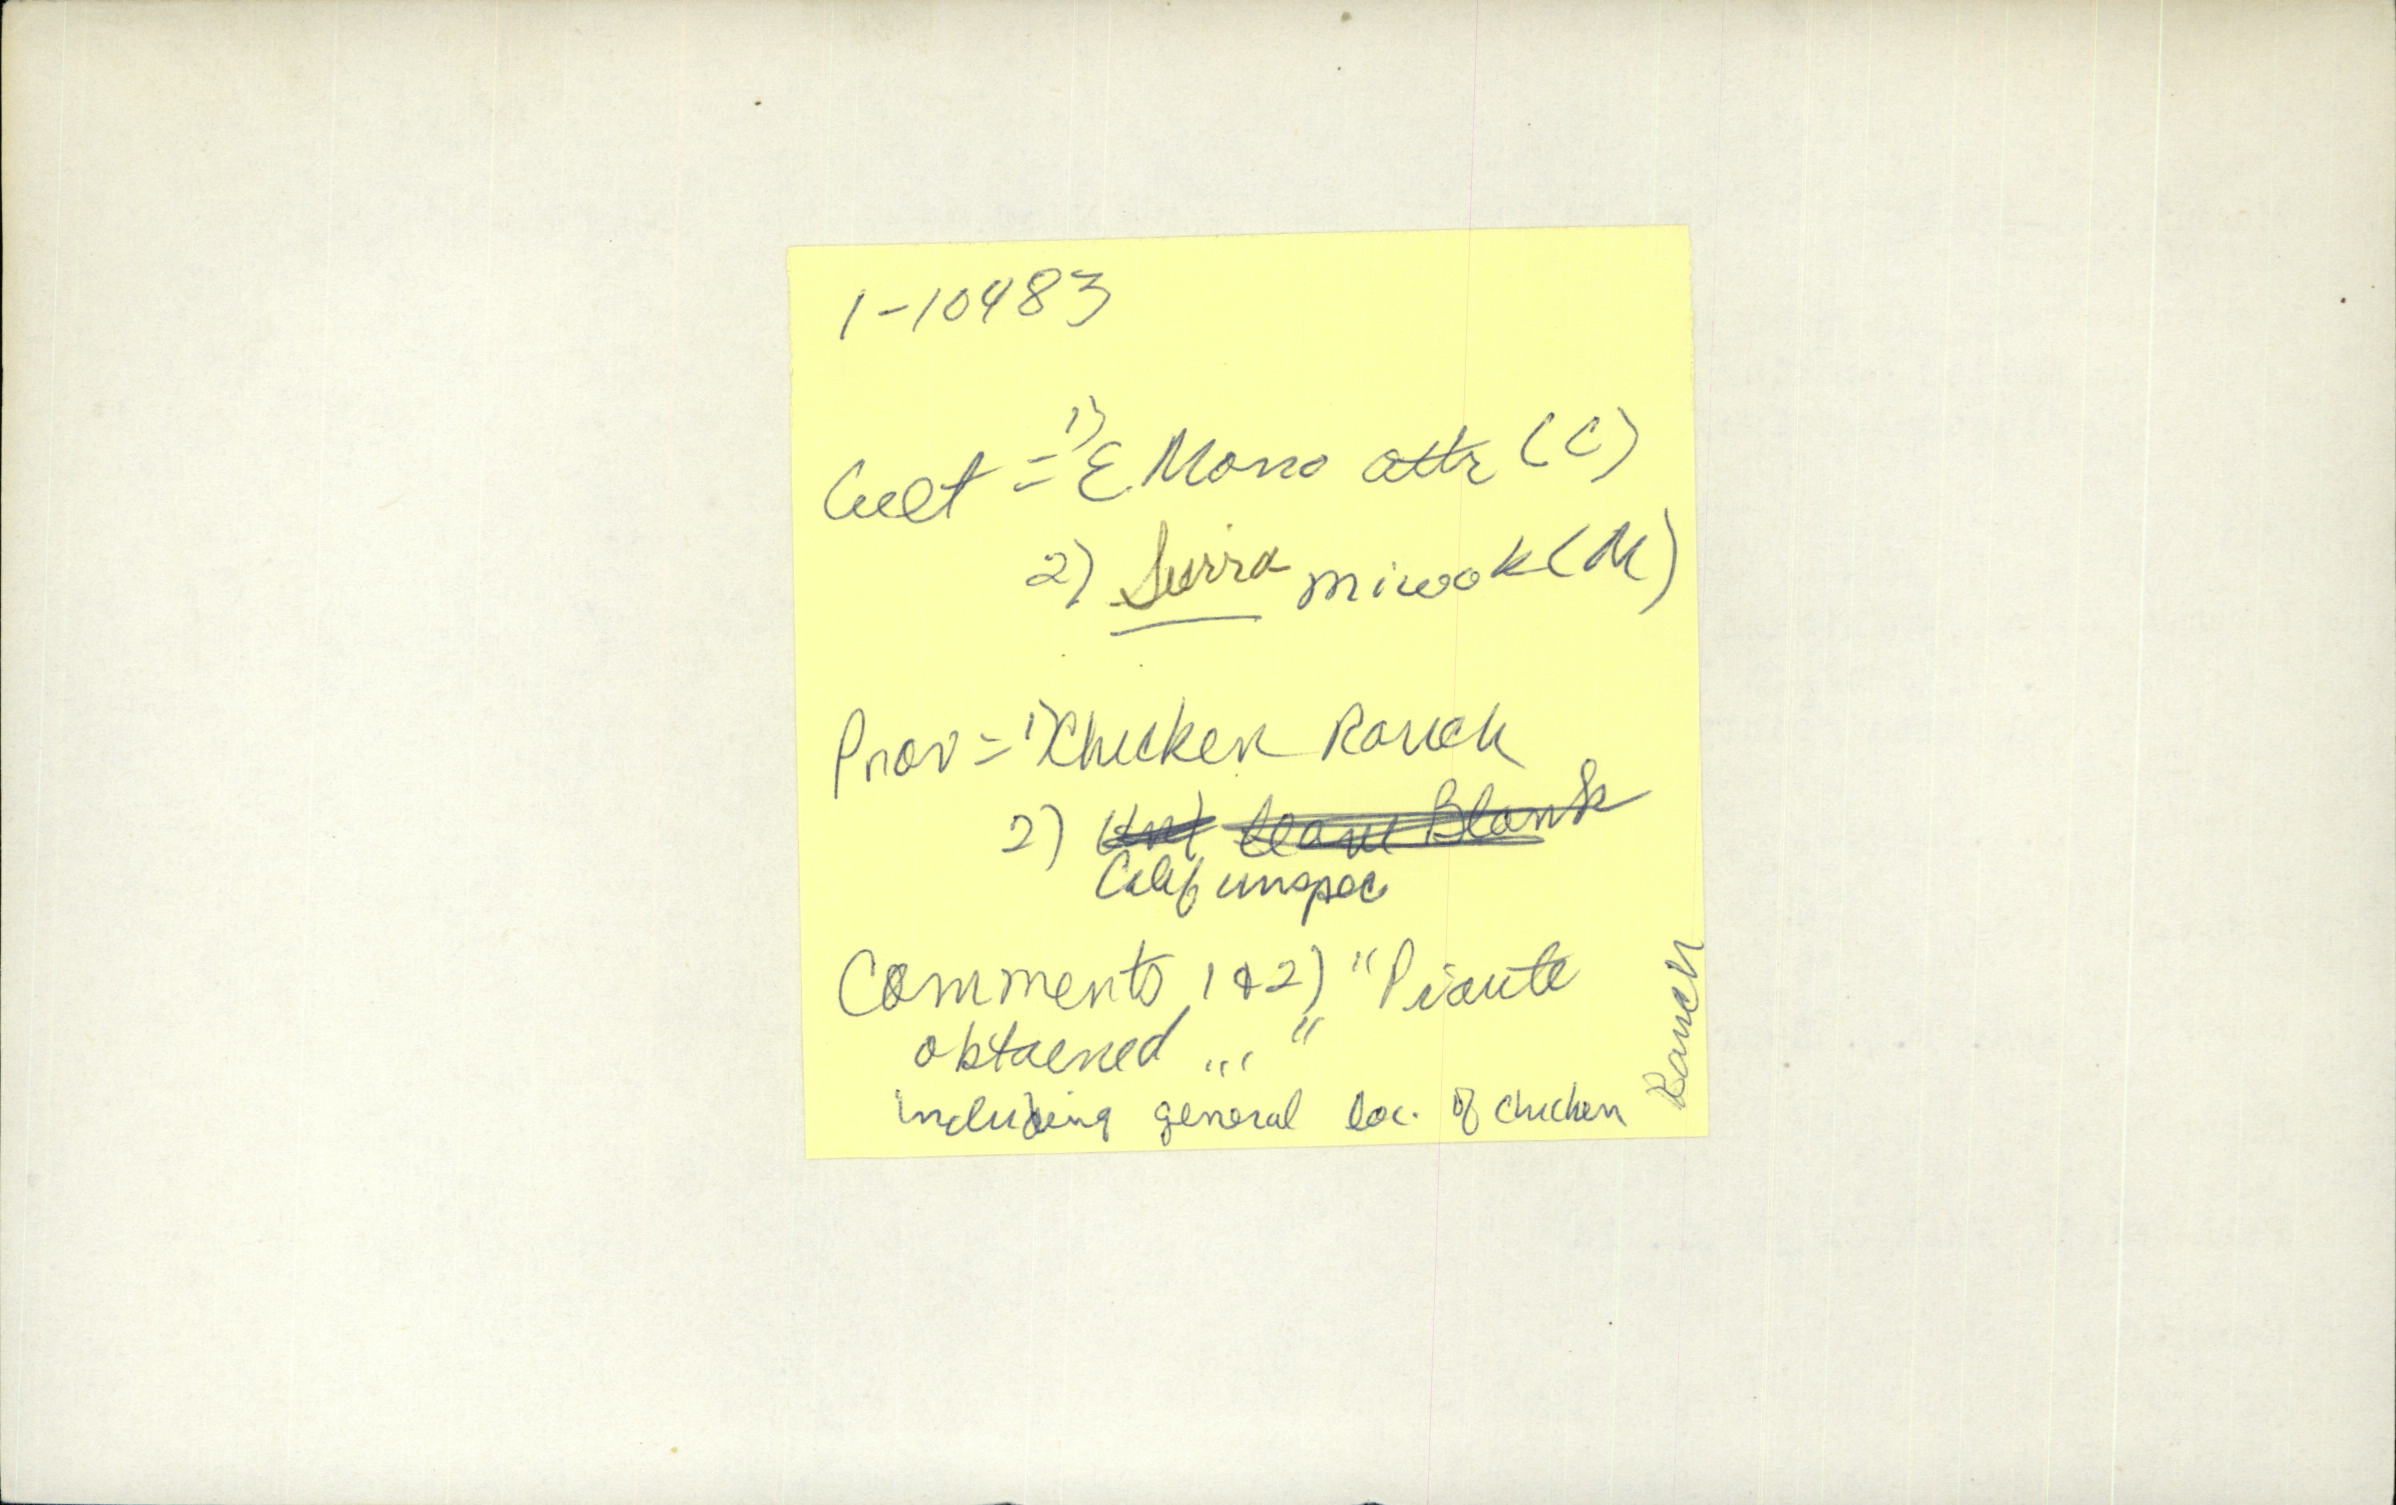 1-10483
Cult = 1) E. Mono attr (C)
2) Sierra miwok (M)
Prov = 1) Chicken Ranch
2) Unk Leave Blank
Calif unspec
Comments 1 & 2) "Piaute
obtained ... "
including general loc. of chicken Ranch